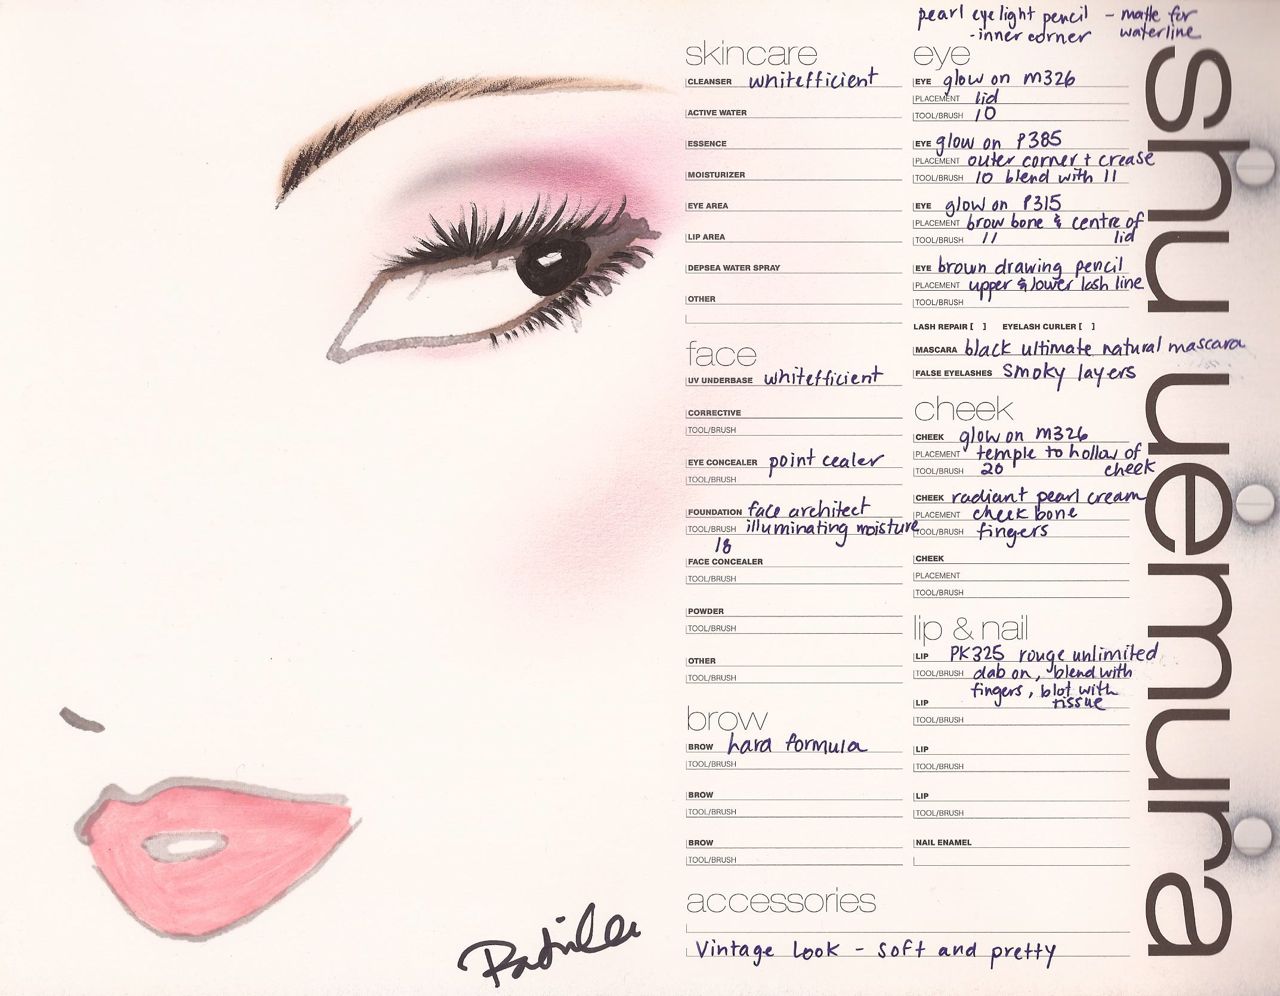 pearl eyelight pencil - matte for
- inner corner waterline
skincare
CLEANSER whitefficient
ACTIVE WATER
ESSENCE
MOISTURIZER
EYE AREA
LIP AREA
DEPSEA WATER SPRAY
OTHER
face
UV UNDERBASE whitefficient
CORRECTIVE
TOOL/BRUSH
EYE CONCEALER point cealer
TOOL/BRUSH
FOUNDATION face architect
TOOL/BRUSH illuminating moisture
18
FACE CONCEALER
TOOL/BRUSH
POWDER
TOOL/BRUSH
OTHER
TOOL/BRUSH
brow
BROW hara formula
TOOL/BRUSH
BROW
TOOL/BRUSH
BROW
TOOL/BRUSH
eye
EYE glow on M326
PLACEMENT lid
TOOL/BRUSH 10
EYE glow on P385
PLACEMENT outer corner + crease
TOOL/BRUSH 10 blend with 11
EYE glow on P315
PLACEMENT brow bone & centre of
TOOL/BRUSH 11 lid
EYE brown drawing pencil
PLACEMENT upper & lower lash line
TOOL/BRUSH
LASH REPAIR [ ] EYELASH CURLER [ ]
MASCARA black ultimate natural mascara
FALSE EYELASHES smoky layers
cheek
CHEEK glow on M326
PLACEMENT temple to hollow of
TOOL/BRUSH 20 cheek
CHEEK radiant pearl cream
PLACEMENT cheek bone
TOOL/BRUSH fingers
CHEEK
PLACEMENT
TOOL/BRUSH
lip & nail
LIP PK325 rouge unlimited
TOOL/BRUSH dab on, blend with
fingers, blot with
LIP tissue
TOOL/BRUSH
LIP
TOOL/BRUSH
LIP
TOOL/BRUSH
NAIL ENAMEL
accessories
Vintage look - soft and pretty
shu uemura